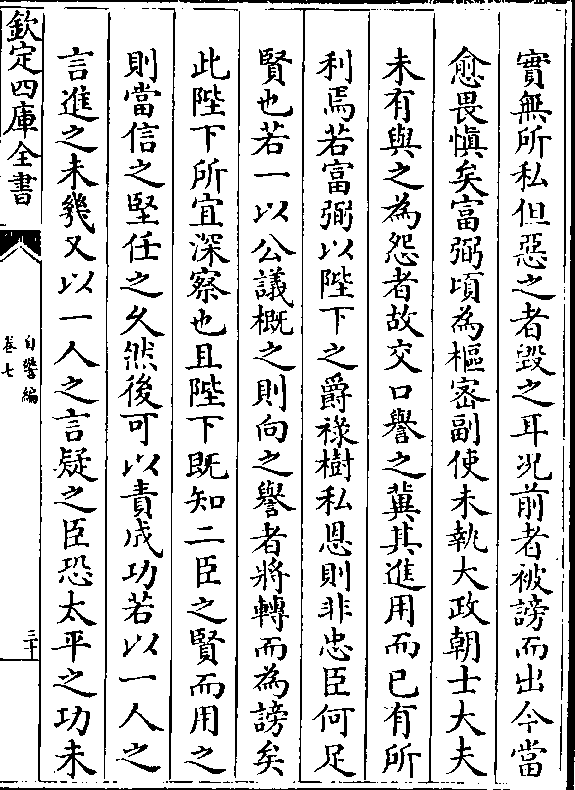 實無所私但惡之者毀之耳况前者被謗而出今當
愈畏慎矣富弼頃為樞密副使未執大政朝士大夫
未有與之為怨者故交口譽之冀其進用而已有所
利焉若富弼以陛下之爵祿樹私恩則非忠臣何足
賢也若一以公議概之則向之譽者將轉而為謗矣
此陛下所宜深察也且陛下既知二臣之賢而用之
則當信之堅任之久然後可以責成功若以一人之
言進之未幾又以一人之言疑之臣恐太平之功未
欽定四庫全書
自警編
卷七
三十